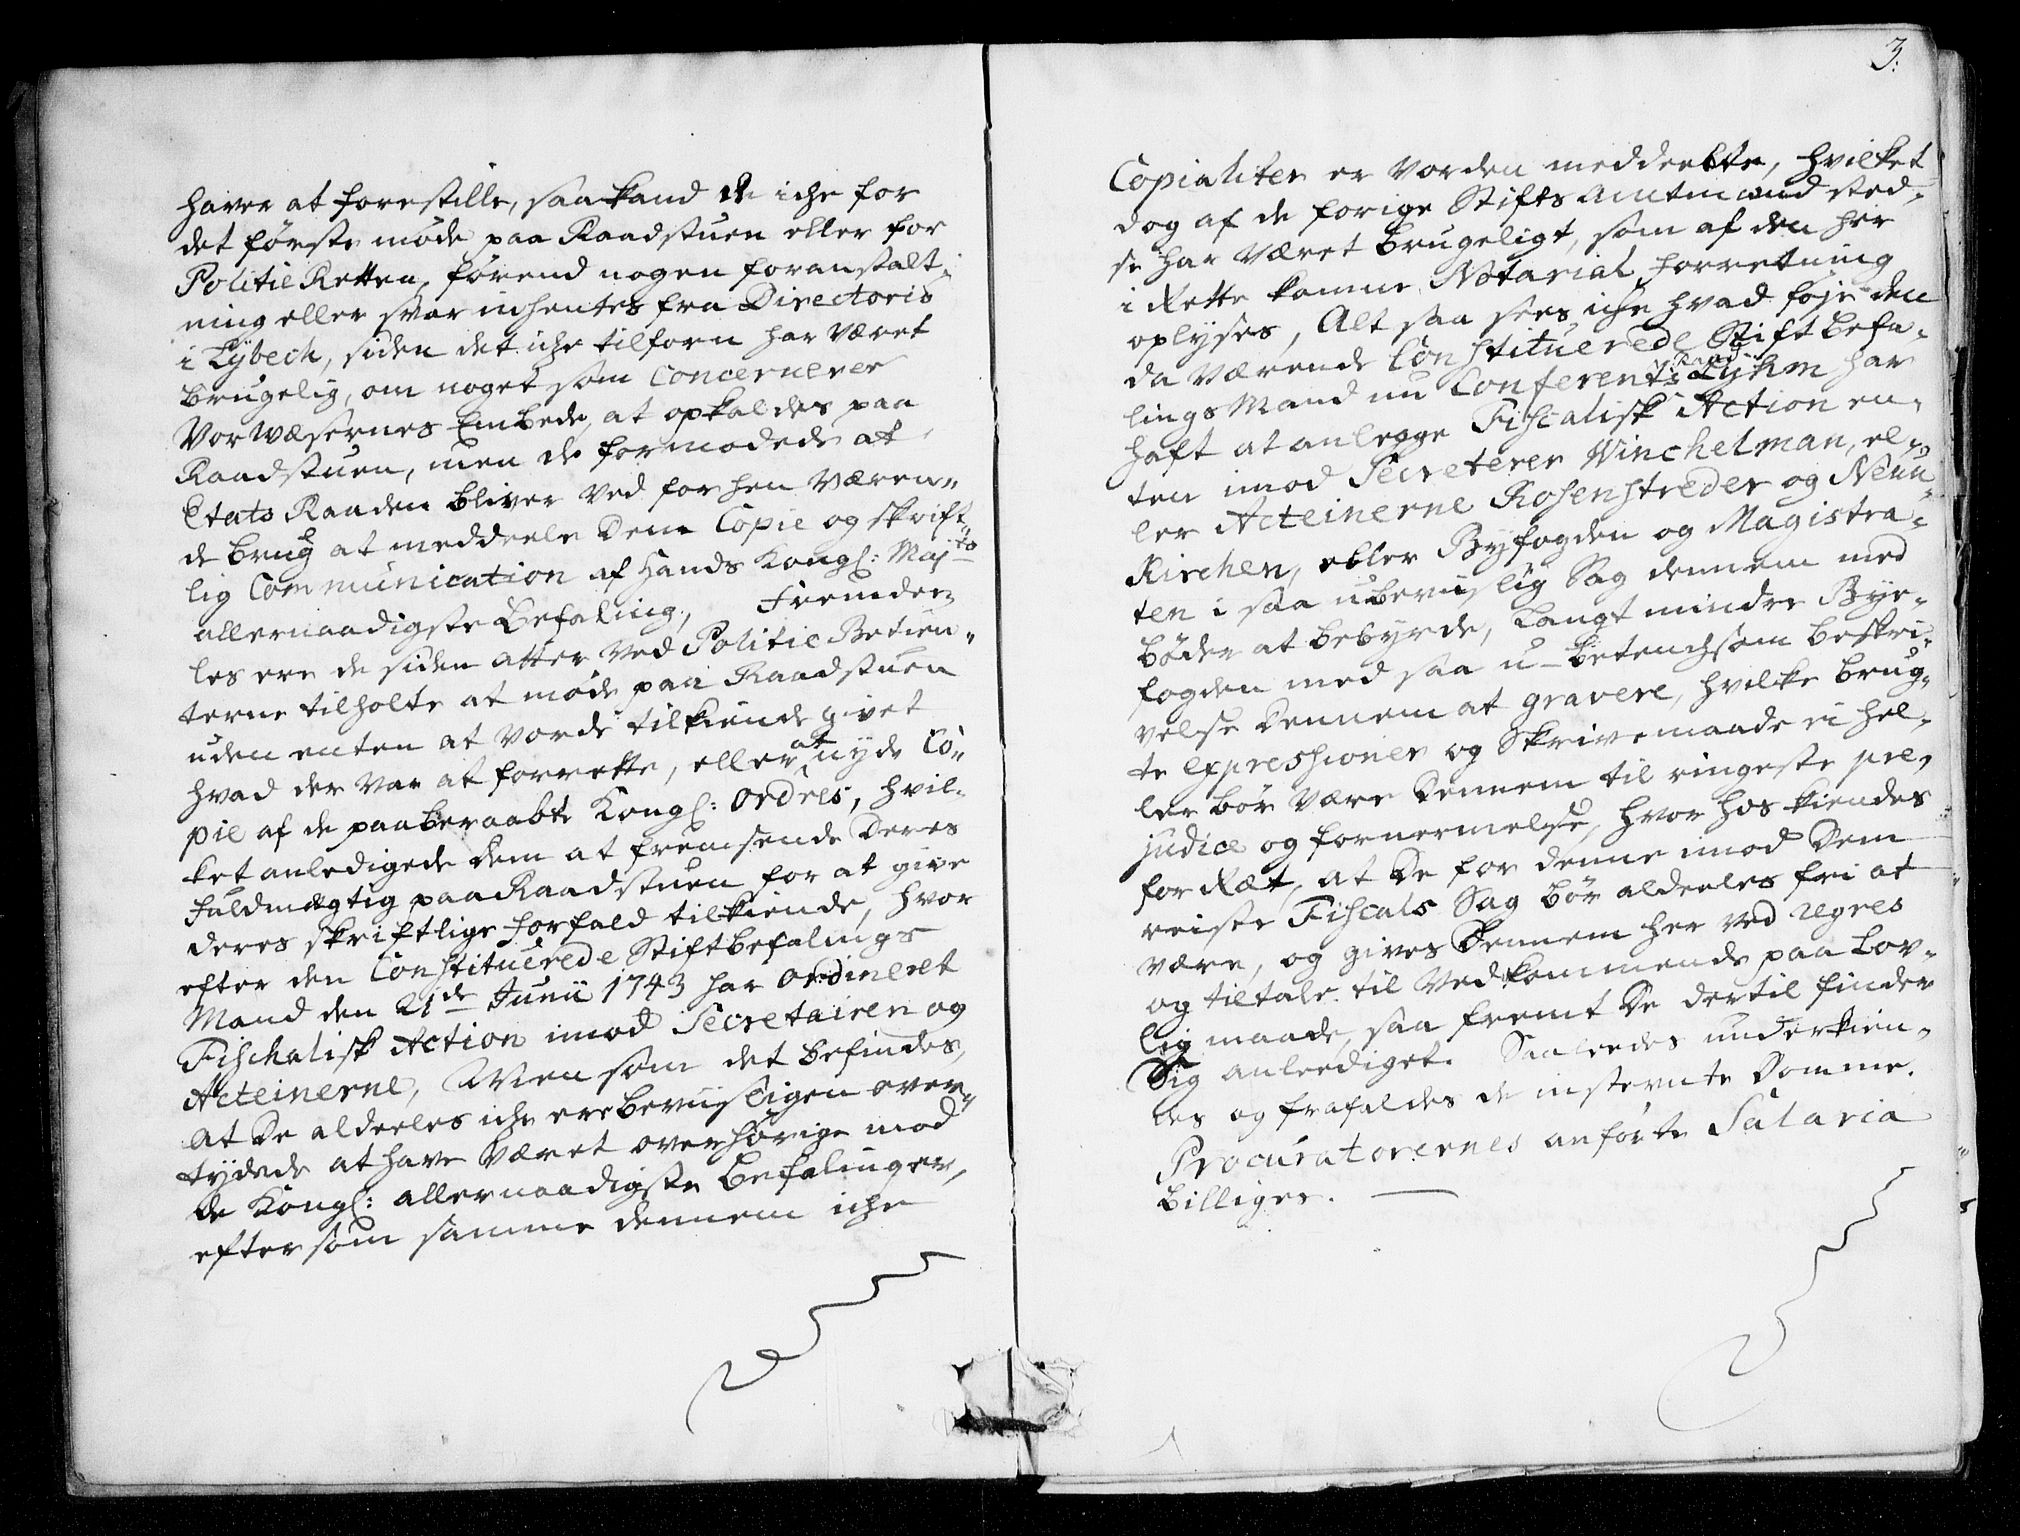 haver at forestille, saa kand de iche for
det første møde paa Raadstuen eller for
Politie Retten, førend nogen foranstalt,
ning eller svar inhentes fra Directoris
i Lybech, siden det iche tilforn har været
brugelig, om noget som Concernerer
Vorwæsernes Embede, at opkaldes paa
Raadstuen, men de formodede at
Etats Raaden bliver ved forhen væren„
de brug at meddeele Dem Copie og skrift„
lig Communication af Hands Kongl: Majts
allernaadigste Befaling, Fremdee„
les ere de siden atter ved Politie Betien„
terne tilholte at møde paa Raadstuen
uden enten at vorde tilkiende givet
hvad der var at forrette, eller at nyde Co„
pie af de paaberaabte Kongl: Ordres, hvil„
ket anledigede dem at fremsende Deres
Fuldmægtig paa Raadstuen for at give
deres skriftlige Forfald tilkiende, hvor
efter den Constituerede Stiftbefalings
Mand den 21de Junii 1743 har ordineret
Fischalisk Action imod Secretairen og
Acteinerne, Men som det befindes,
at De aldeeles iche ere beviisligen over„
tydede at have været overhørige mod
De Kongl: allernaadigste Befalinger,
eftersom samme dennem iche
3.
Copialiter er vorden meddeelte, hvilket
dog af de forige Stifts Amtmænd sted„
se har været brugeligt, som af den her
i Rette komne Notarial forretning
oplyses, Alt saa sees iche hvad føje den
da værende Constituerede Stiftbefa„
lings Mand nu Conferentz Raad Lyhm har
haft at anlegge Fiscalisk Action en„
ten imod Secreterer Winchelman, el„
ler Acteinerne Rosenstreder og Neuu„
Kirchen, eller Byefogden og Magistra„
ten i saa ubeviislig Sag dennem med
bøder at bebyrde, langt mindre Bye„
fogden med saa u-betenchsom beskri„
velse Dennem at gravere, hvilke brug„
te expressioner og Skrivemaade ei hel„
ler bør være Dennem til ringeste præ„
judice og fornermelse, hvor hos kiendes
for Ræt, at De for denne imod Dem
reiste Fiscals Sag bør aldeeles fri at
være, og gives Dennem her ved regres
og tiltale til vedkommende paa Lov„
lig maade, saa fremt De dertil finder
Sig anleediget. Saaledes underkien„
des og frafaldes de instevnte Domme.
Procuratorernes anførte Salaria
billiges.